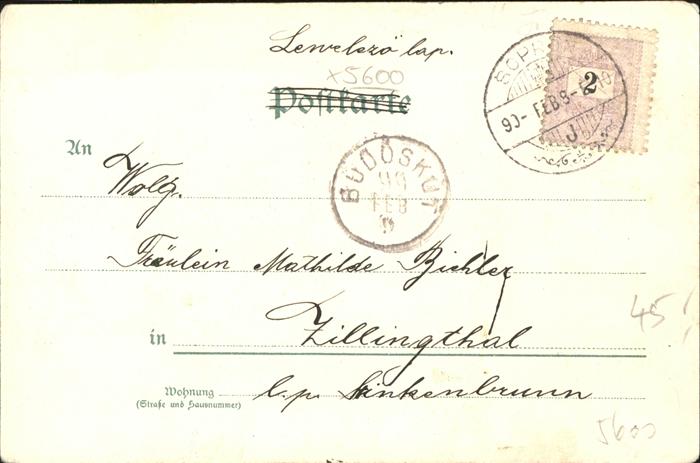 Levelező lap.
x5600
Postkarte
SOPRON
90- FEB 8-
2
J
An
Wolg.
BÜDÖSKUT
FEB
Fräulein Mathilde Bichler
45
in Zillingthal
Wohnung
(Straße und Hausnummer)
l.p. Stinkenbrunn
5600